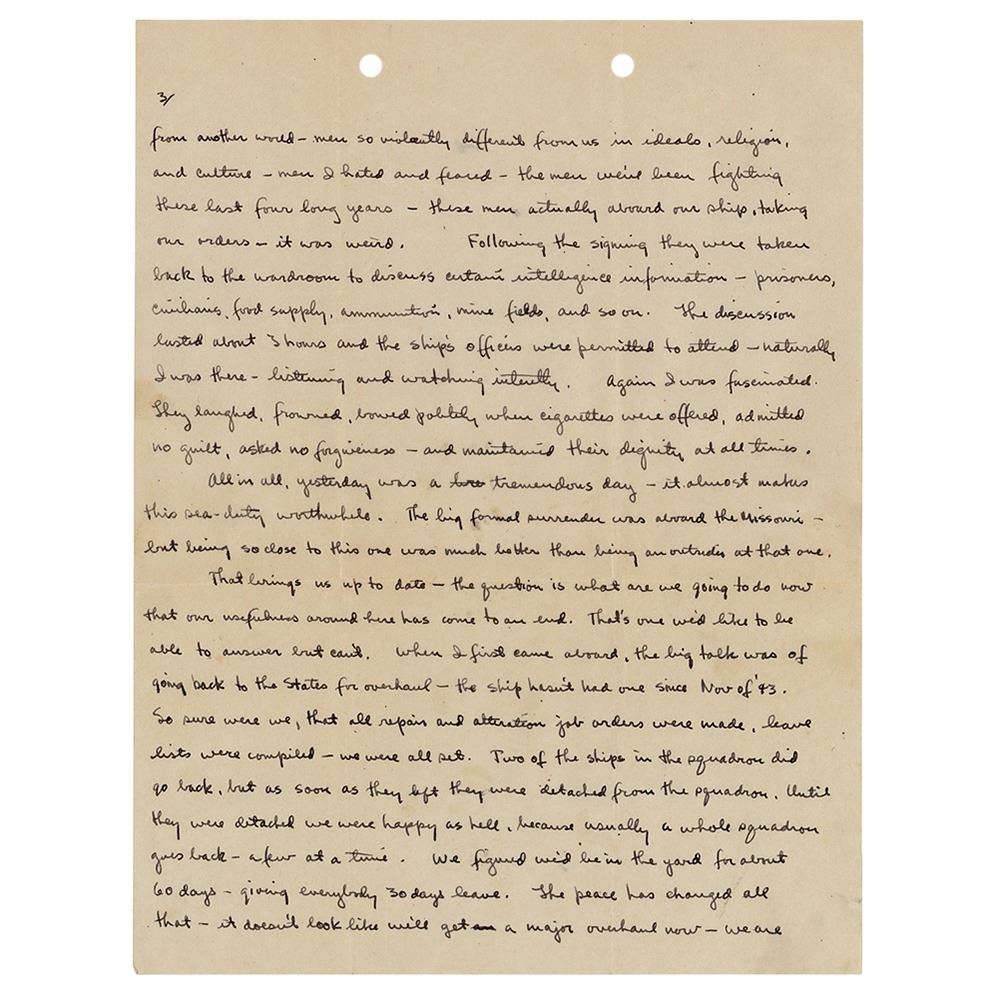 3/
from another world - men so violently different from us in ideals, religion,
and culture - men I hated and feared - the men we've been fighting
these last four long years - these men actually aboard our ship, taking
our orders - it was weird. Following the signing they were taken
back to the wardroom to discuss certain intelligence information - prisoners,
civilians, food supply, ammunition, mine fields, and so on. The discussion
lasted about 3 hours and the ship's officers were permitted to attend - naturally
I was there - listening and watching intently. Again I was fascinated.
They laughed, frowned, bowed politely when cigarettes were offered, admitted
no guilt, asked no forgiveness - and maintained their dignity at all times.
All in all, yesterday was a tremendous day - it almost makes
this sea-duty worthwhile. The big formal surrender was aboard the Missouri -
but being so close to this one was much better than being an outsider at that one.
That brings us up to date - the question is what are we going to do now
that our usefulness around here has come to an end. That's one we'd like to be
able to answer but can't. When I first came aboard, the big talk was of
going back to the States for overhaul - the ship hasn't had one since Nov of '43.
So sure were we, that all repair and alteration job orders were made, leave
lists were compiled - we were all set. Two of the ships in the squadron did
go back, but as soon as they left they were detached from the squadron. Until
they were detached we were happy as hell, because usually a whole squadron
goes back - a few at a time. We figured we'd be in the yard for about
60 days - giving everybody 30 days leave. The peace has changed all
that - it doesn't look like we'll get a major overhaul now - we are